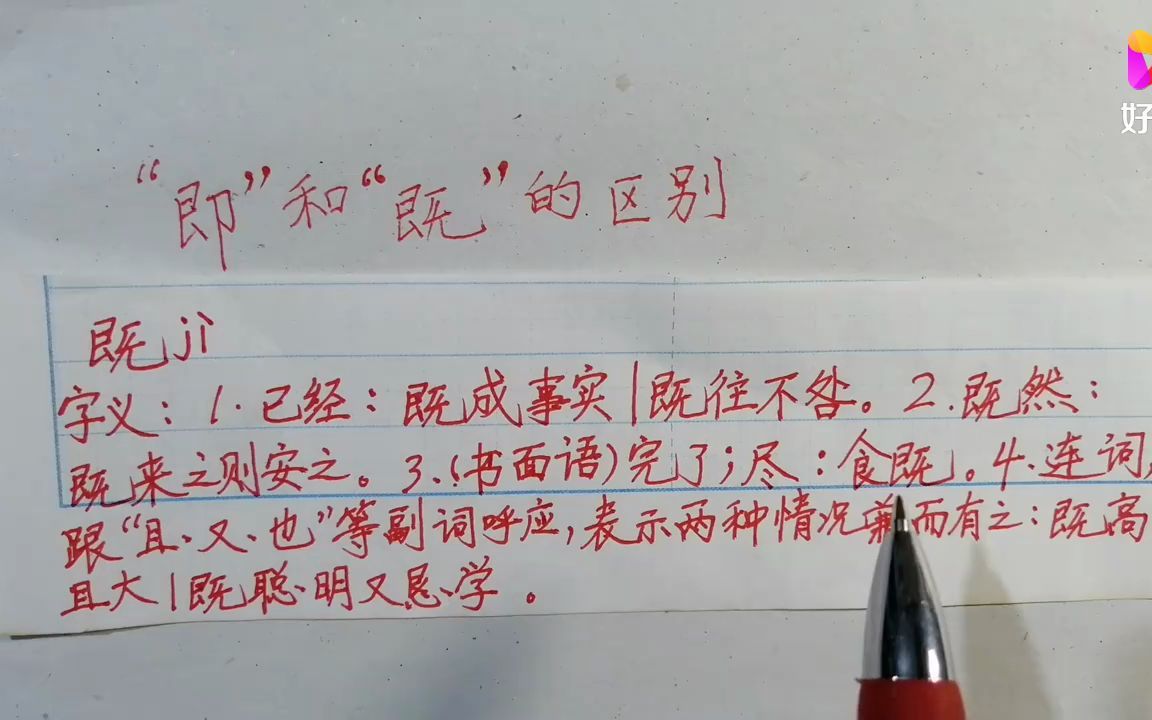 好
“即”和“既”的区别
既 jì
字义：1.已经：既成事实|既往不咎。2.既然：
既来之则安之。3.(书面语)完了；尽：食既。4.连词，
跟“且、又、也”等副词呼应，表示两种情况兼而有之：既高
且大|既聪明又恳学。